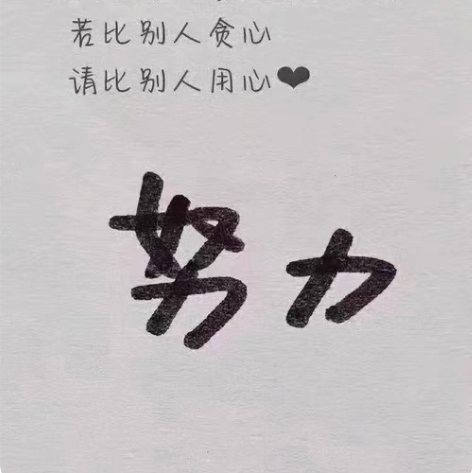 若比别人贪心
请比别人用心❤
努力